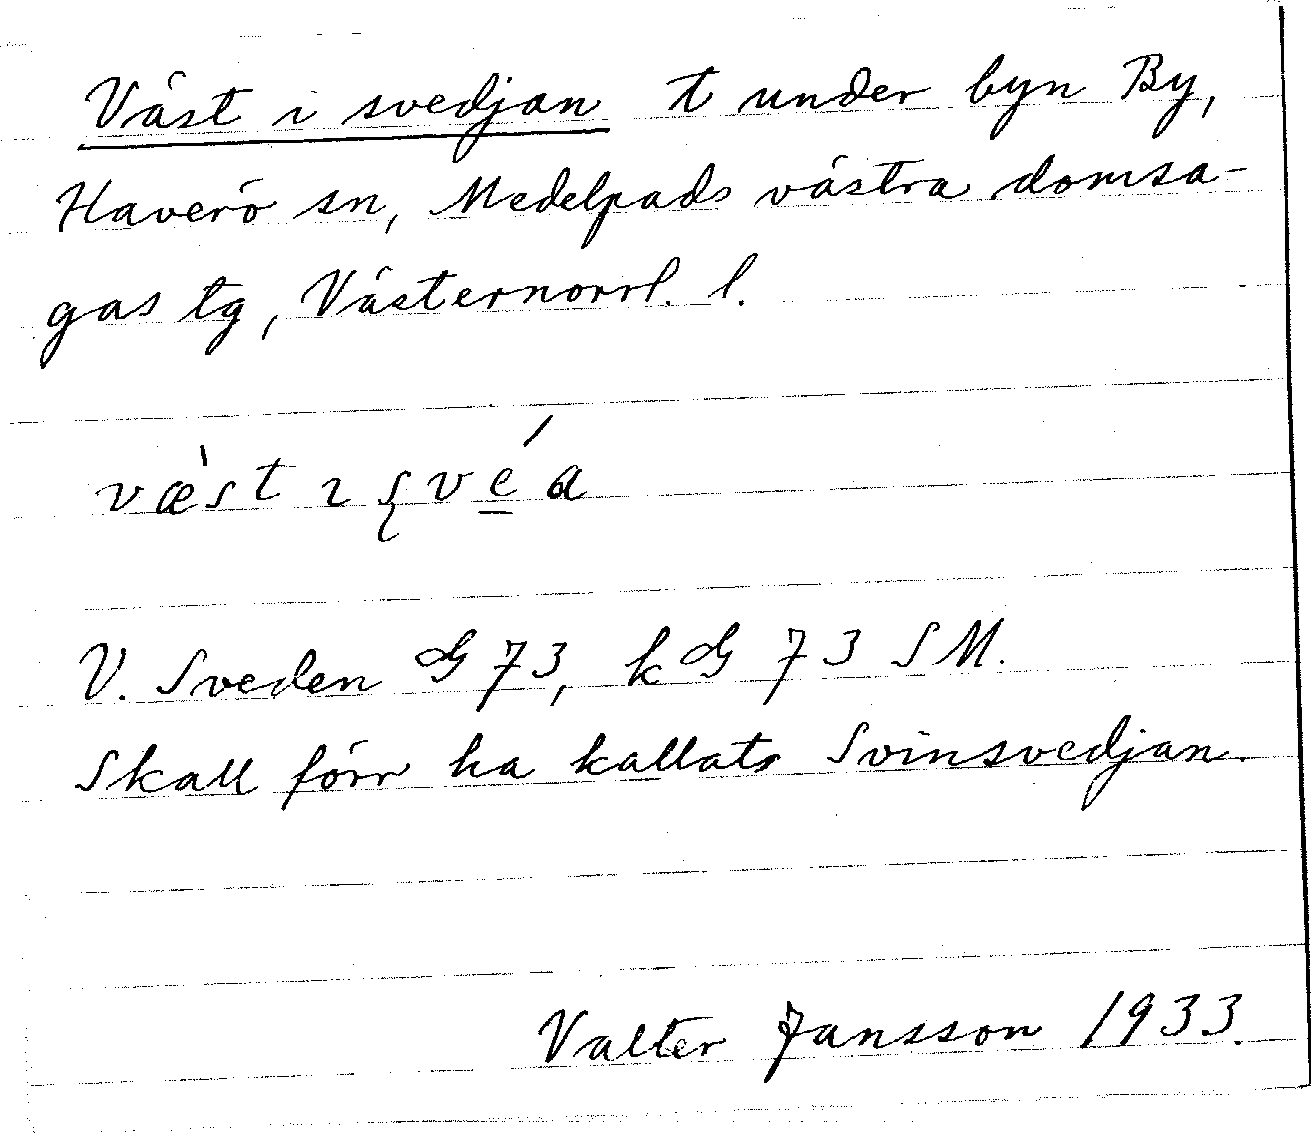 Väst i svedjan t under byn By,
Haverö sn, Medelpads västra domsa-
gas tg, Västernorrl. l.
væ̀st ɩ ʂvé̲a
V. Sveden G 73, k G 73 SM.
Skall förr ha kallats Svinsvedjan.
Valter Jansson 1933.